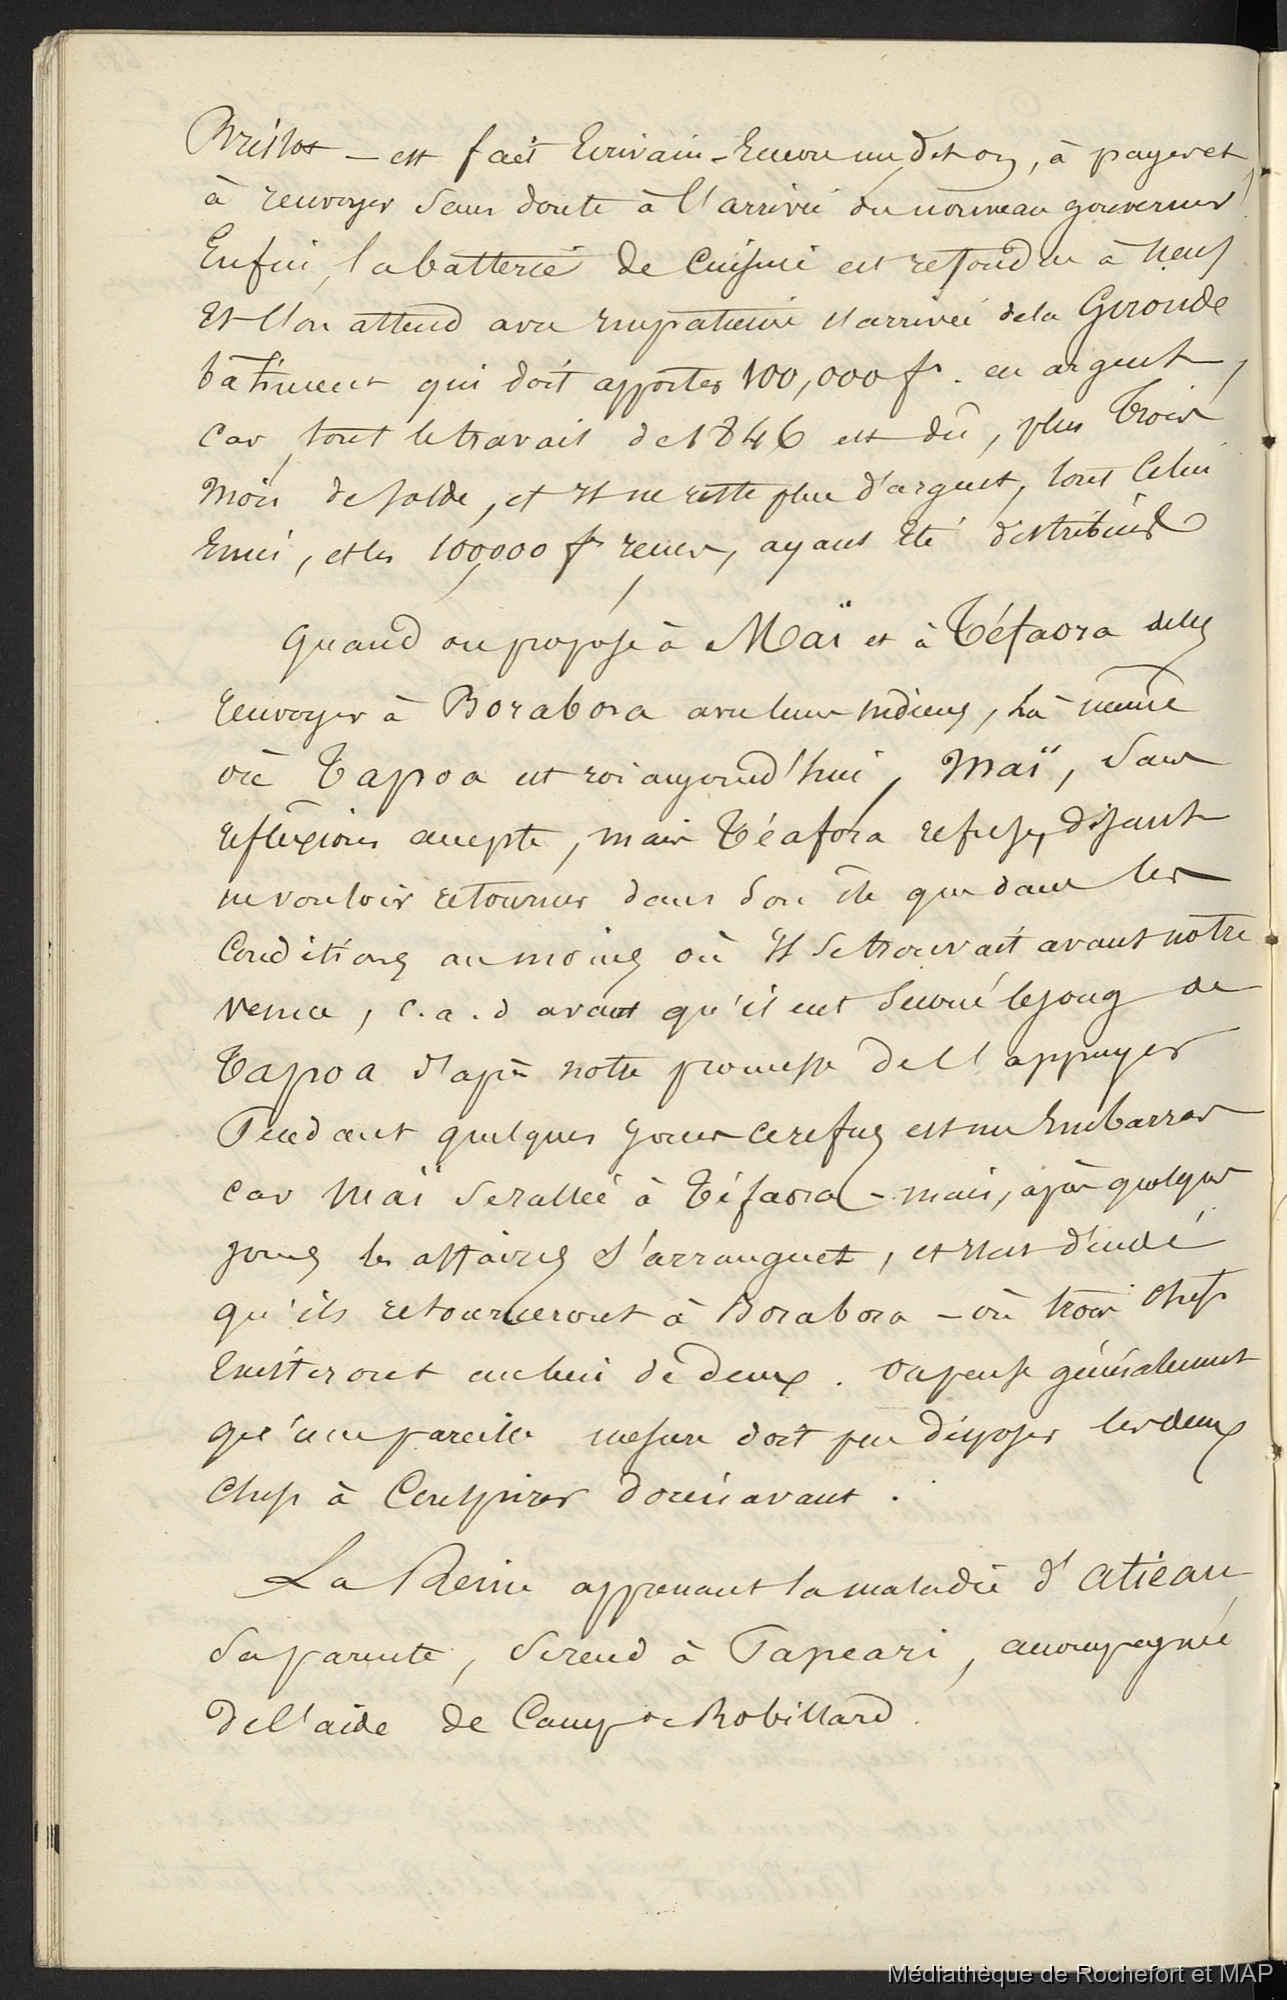 Brislot – est fait Ecrivain – Encore un de son, à payer et
à renvoyer sans doute à l'arrivée du nouveau gouverneur!
Enfin, la batterie de Cuisine est refondue à neuf
Et l'on attend avec impatience l'arrivée de la Gironde
bâtiment qui doit apporter 100,000 fr. en argent,
car tout le travail de 1846 est dû, plus trois
mois de solde, et il ne reste plus d'argent, tout celui
Emis, et les 100,000 fr reçus, ayant été distribués
Quand on propose à Maï et à Téfaora de les
renvoyer à Borabora avec leurs indiens, là même
où Tapoa est roi aujourd'hui, Maï, sans
reflexions accepte, mais Téafora refuse, disant
ne vouloir retourner dans son île que dans les
Conditions au moins où il se trouvait avant notre
venue, c.a.d avant qu'il eut secoué le joug de
Tapoa d'après notre promesse de l'appuyer
Pendant quelques jours ce refus est un Embarras
car Maï se rallie à Téfaora – mais, après quelques
jours les affaires s'arranguent, et il est décidé
qu'ils retourneront à Borabora – où trois chefs
Existeront au lieu de deux. On pense généralement
qu'une pareille mesure doit peu disposer les deux
chefs à Conspirer dorénavant.
La Reine apprenant la maladie d'Atiéau
sa parente, se rend à Papeari, accompagnée
de l'aide de Camp de Robillard.
Médiathèque de Rochefort et MAP